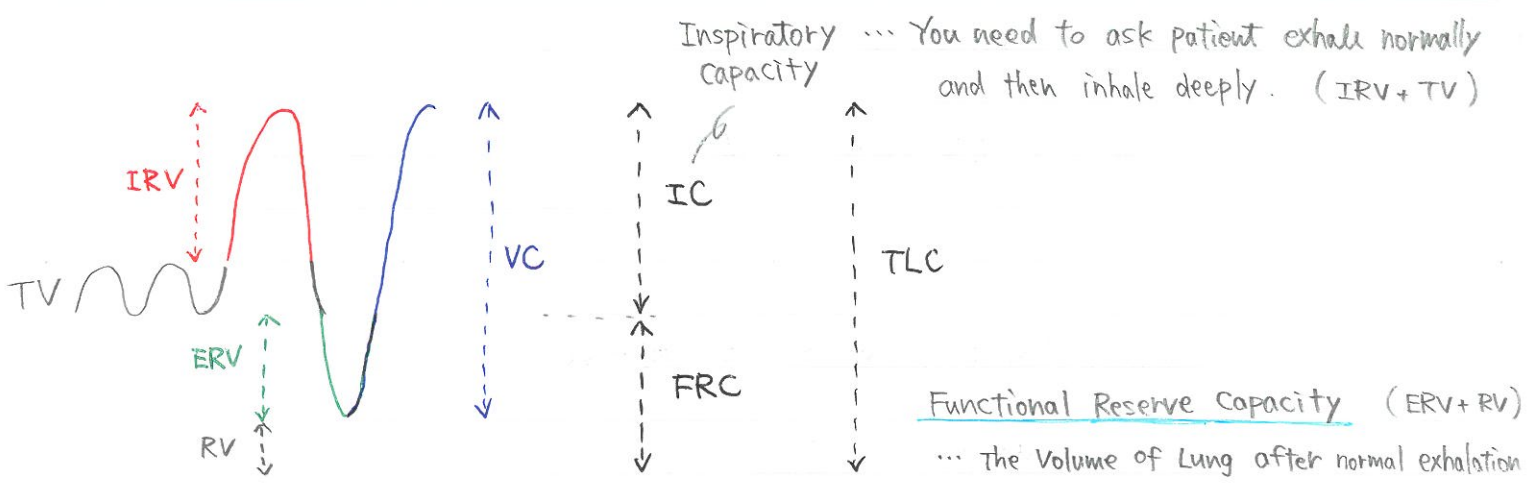 Inspiratory ... You need to ask patient exhale normally
capacity and then inhale deeply. (IRV + TV)
IRV
IC
VC
TLC
TV
ERV
FRC
Functional Reserve Capacity (ERV + RV)
RV
... The Volume of Lung after normal exhalation